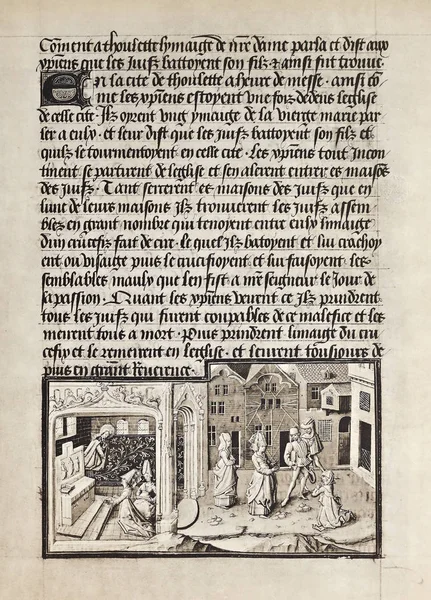 Coment a thoulette lymaige de nre dame parla et dist aux
xpiens que les Juifz battoyent son filz · et ainsi fut trouve ·
En la cite de thoulette a heure de messe · ainsi co
me les xpiens estoyent une fois dedens leglise
de celle cite · Ilz oyrent ung ymaige de la vierge marie par
ler a eulx · et leur dist que les Juifz battoyent son filz et
quilz le tourmentoyent en celle cite · Les xpiens tout Incon
tinent se partirent de leglise et sen alerent entrer es maisos
des Juifz · Tant sercerent es maisons des Juifz que en
lune de leurs maisons Ilz trouverent les Juifz assem
blez en grant nombre qui tenoyent entre eulx limaige
dun crucefix fait de cire · le quel Ilz batoyent et lui crachoy
ent ou visaige puis le crucifioyent et lui faisoyent les
semblables maulx que len fist a nre seigneur le Jour de
sa passion · Quant les xpiens veirent ce Ilz prindrent
tous les Juifz qui furent coupables de ce malefice et les
mirent tous a mort · Puis prindrent limaige du cru
cefix et le remirent en leglise · et leurent tousjours de
puis en grant Reverence ·